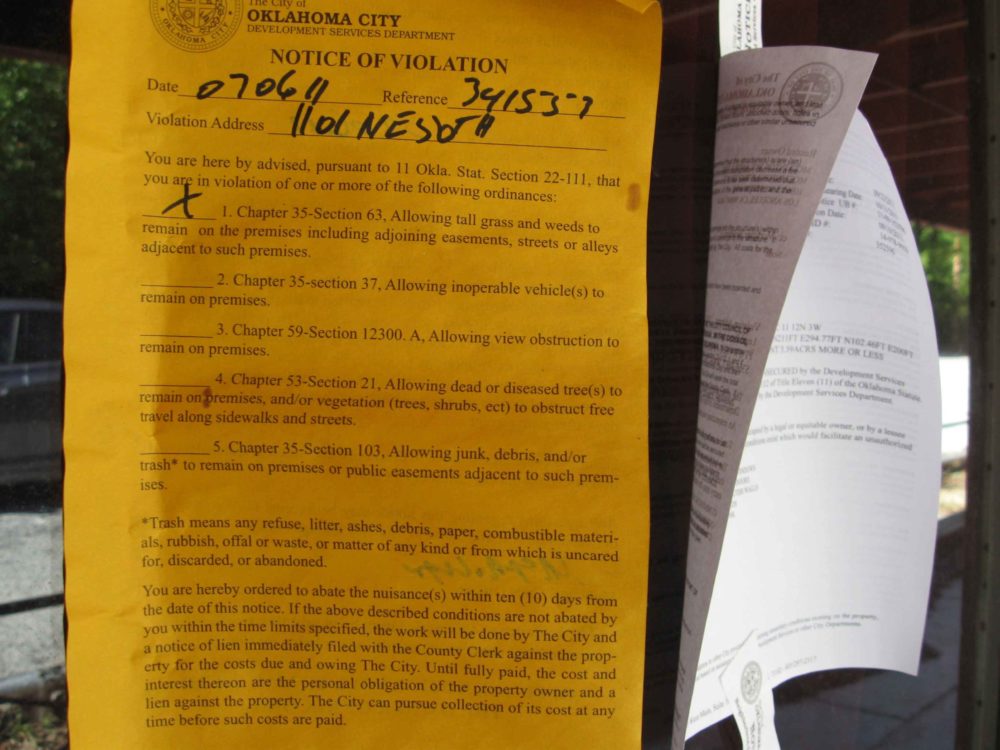 The City of
OKLAHOMA CITY
DEVELOPMENT SERVICES DEPARTMENT
OKLAHOMA CITY
NOTICE OF VIOLATION
Date 070611 Reference 3415357
Violation Address 1101 NE50TH
You are here by advised, pursuant to 11 Okla. Stat. Section 22-111, that
you are in violation of one or more of the following ordinances:
X 1. Chapter 35-Section 63, Allowing tall grass and weeds to
remain on the premises including adjoining easements, streets or alleys
adjacent to such premises.
2. Chapter 35-section 37, Allowing inoperable vehicle(s) to
remain on premises.
3. Chapter 59-Section 12300. A, Allowing view obstruction to
remain on premises.
4. Chapter 53-Section 21, Allowing dead or diseased tree(s) to
remain on premises, and/or vegetation (trees, shrubs, ect) to obstruct free
travel along sidewalks and streets.
5. Chapter 35-Section 103, Allowing junk, debris, and/or
trash* to remain on premises or public easements adjacent to such prem-
ises.
*Trash means any refuse, litter, ashes, debris, paper, combustible materi-
als, rubbish, offal or waste, or matter of any kind or from which is uncared
for, discarded, or abandoned.
You are hereby ordered to abate the nuisance(s) within ten (10) days from
the date of this notice. If the above described conditions are not abated by
you within the time limits specified, the work will be done by The City and
a notice of lien immediately filed with the County Clerk against the prop-
erty for the costs due and owing The City. Until fully paid, the cost and
interest thereon are the personal obligation of the property owner and a
lien against the property. The City can pursue collection of its cost at any
time before such costs are paid.
earing Date:
otice UB #:
on Date:
D #:
11 12N 3W
211FT E294.77FT N102.46FT E200FT
1.39ACRS MORE OR LESS
SECURED by the Development Services
of Title Eleven (11) of the Oklahoma Statute,
by the Development Services Department.
by a legal or equitable owner, or by a lessee
which would facilitate an unauthorized